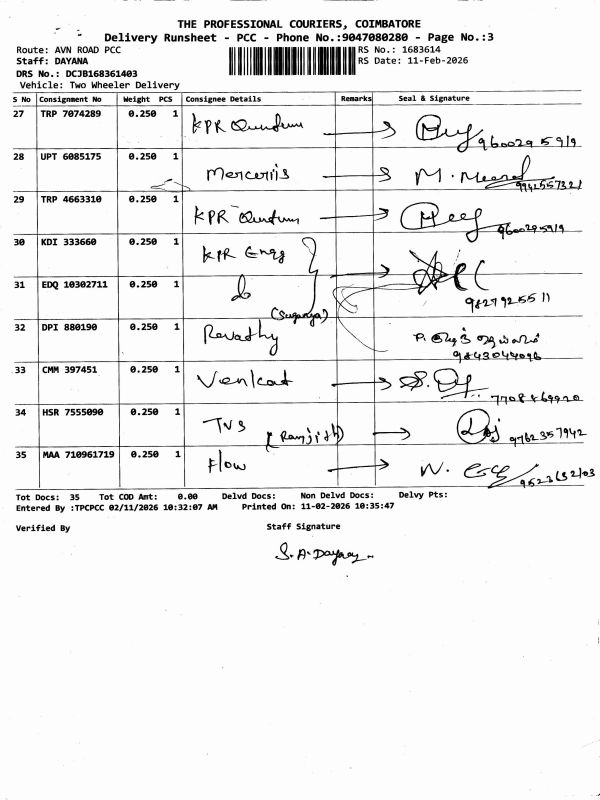 THE PROFESSIONAL COURIERS, COIMBATORE
Delivery Runsheet - PCC - Phone No.:9047080280 - Page No.:3
Route: AVN ROAD PCC RS No.: 1683614
Staff: DAYANA RS Date: 11-Feb-2026
DRS No.: DCJB168361403
Vehicle: Two Wheeler Delivery
S No Consignment No Weight PCS Consignee Details Remarks Seal & Signature
27 TRP 7074289 0.250 1 KPR Quntum 9600295919
28 UPT 6085175 0.250 1 M.
29 TRP 4663310 0.250 1 KPR Quntum 9600295919
30 KDI 333660 0.250 1 KPR Engg
31 EDQ 10302711 0.250 1 9827925511
(Suganya)
32 DPI 880190 0.250 1 Revathy
9843044096
33 CMM 397451 0.250 1 Venkat
34 HSR 7555090 0.250 1 TVS (Ranjith) 9762357942
35 MAA 710961719 0.250 1 Flow N.
Tot Docs: 35 Tot COD Amt: 0.00 Delvd Docs: Non Delvd Docs: Delvy Pts:
Entered By :TPCPCC 02/11/2026 10:32:07 AM Printed On: 11-02-2026 10:35:47
Verified By Staff Signature
S. A. Dayana